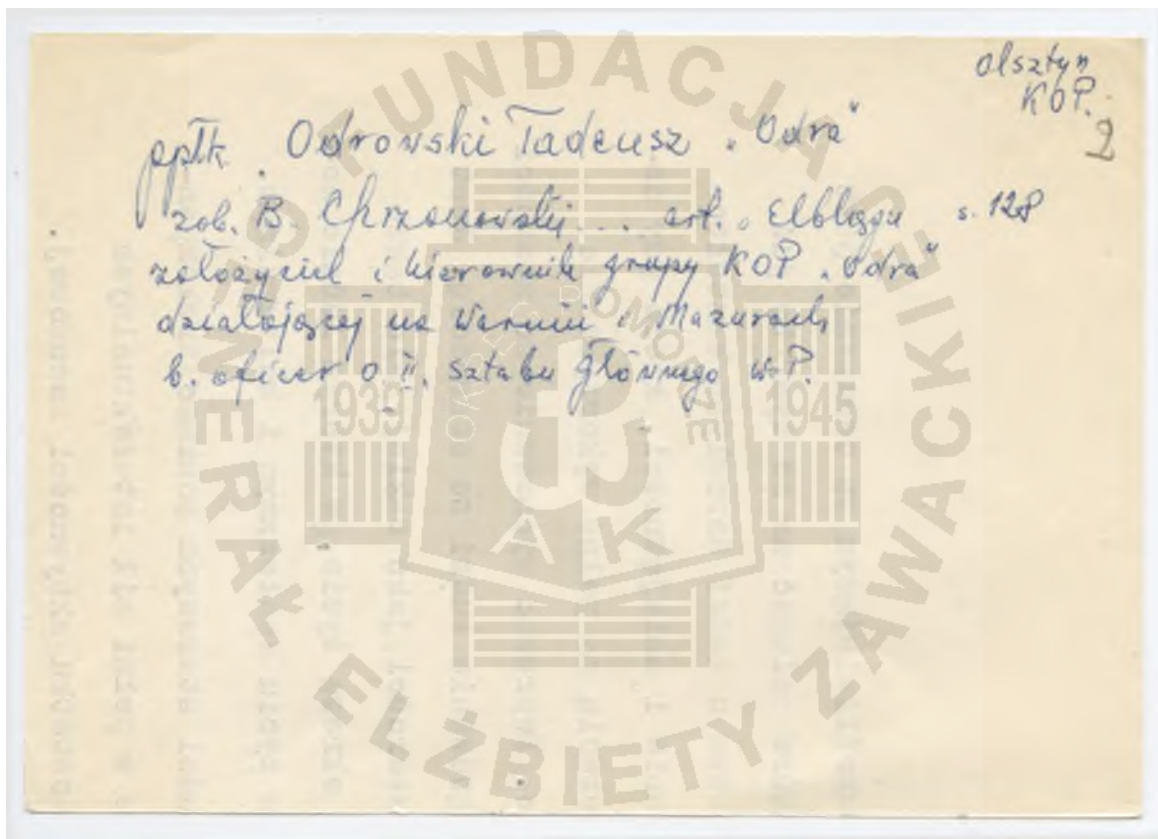 Olsztyn
KOP.
2
ppłk. Odrowski Tadeusz „Odra"
zob. B. Chrzanowskij... art. o Elblągu s. 128
założyciel i kierownik grupy KOP „Odra"
działającej na Warmii i Mazurach,
b. oficer O II. sztabu głównego W.P.
FUNDACJA GENERAŁ ELŻBIETY ZAWACKIEJ
OKRĘG POMORZE
1939 1945
AK